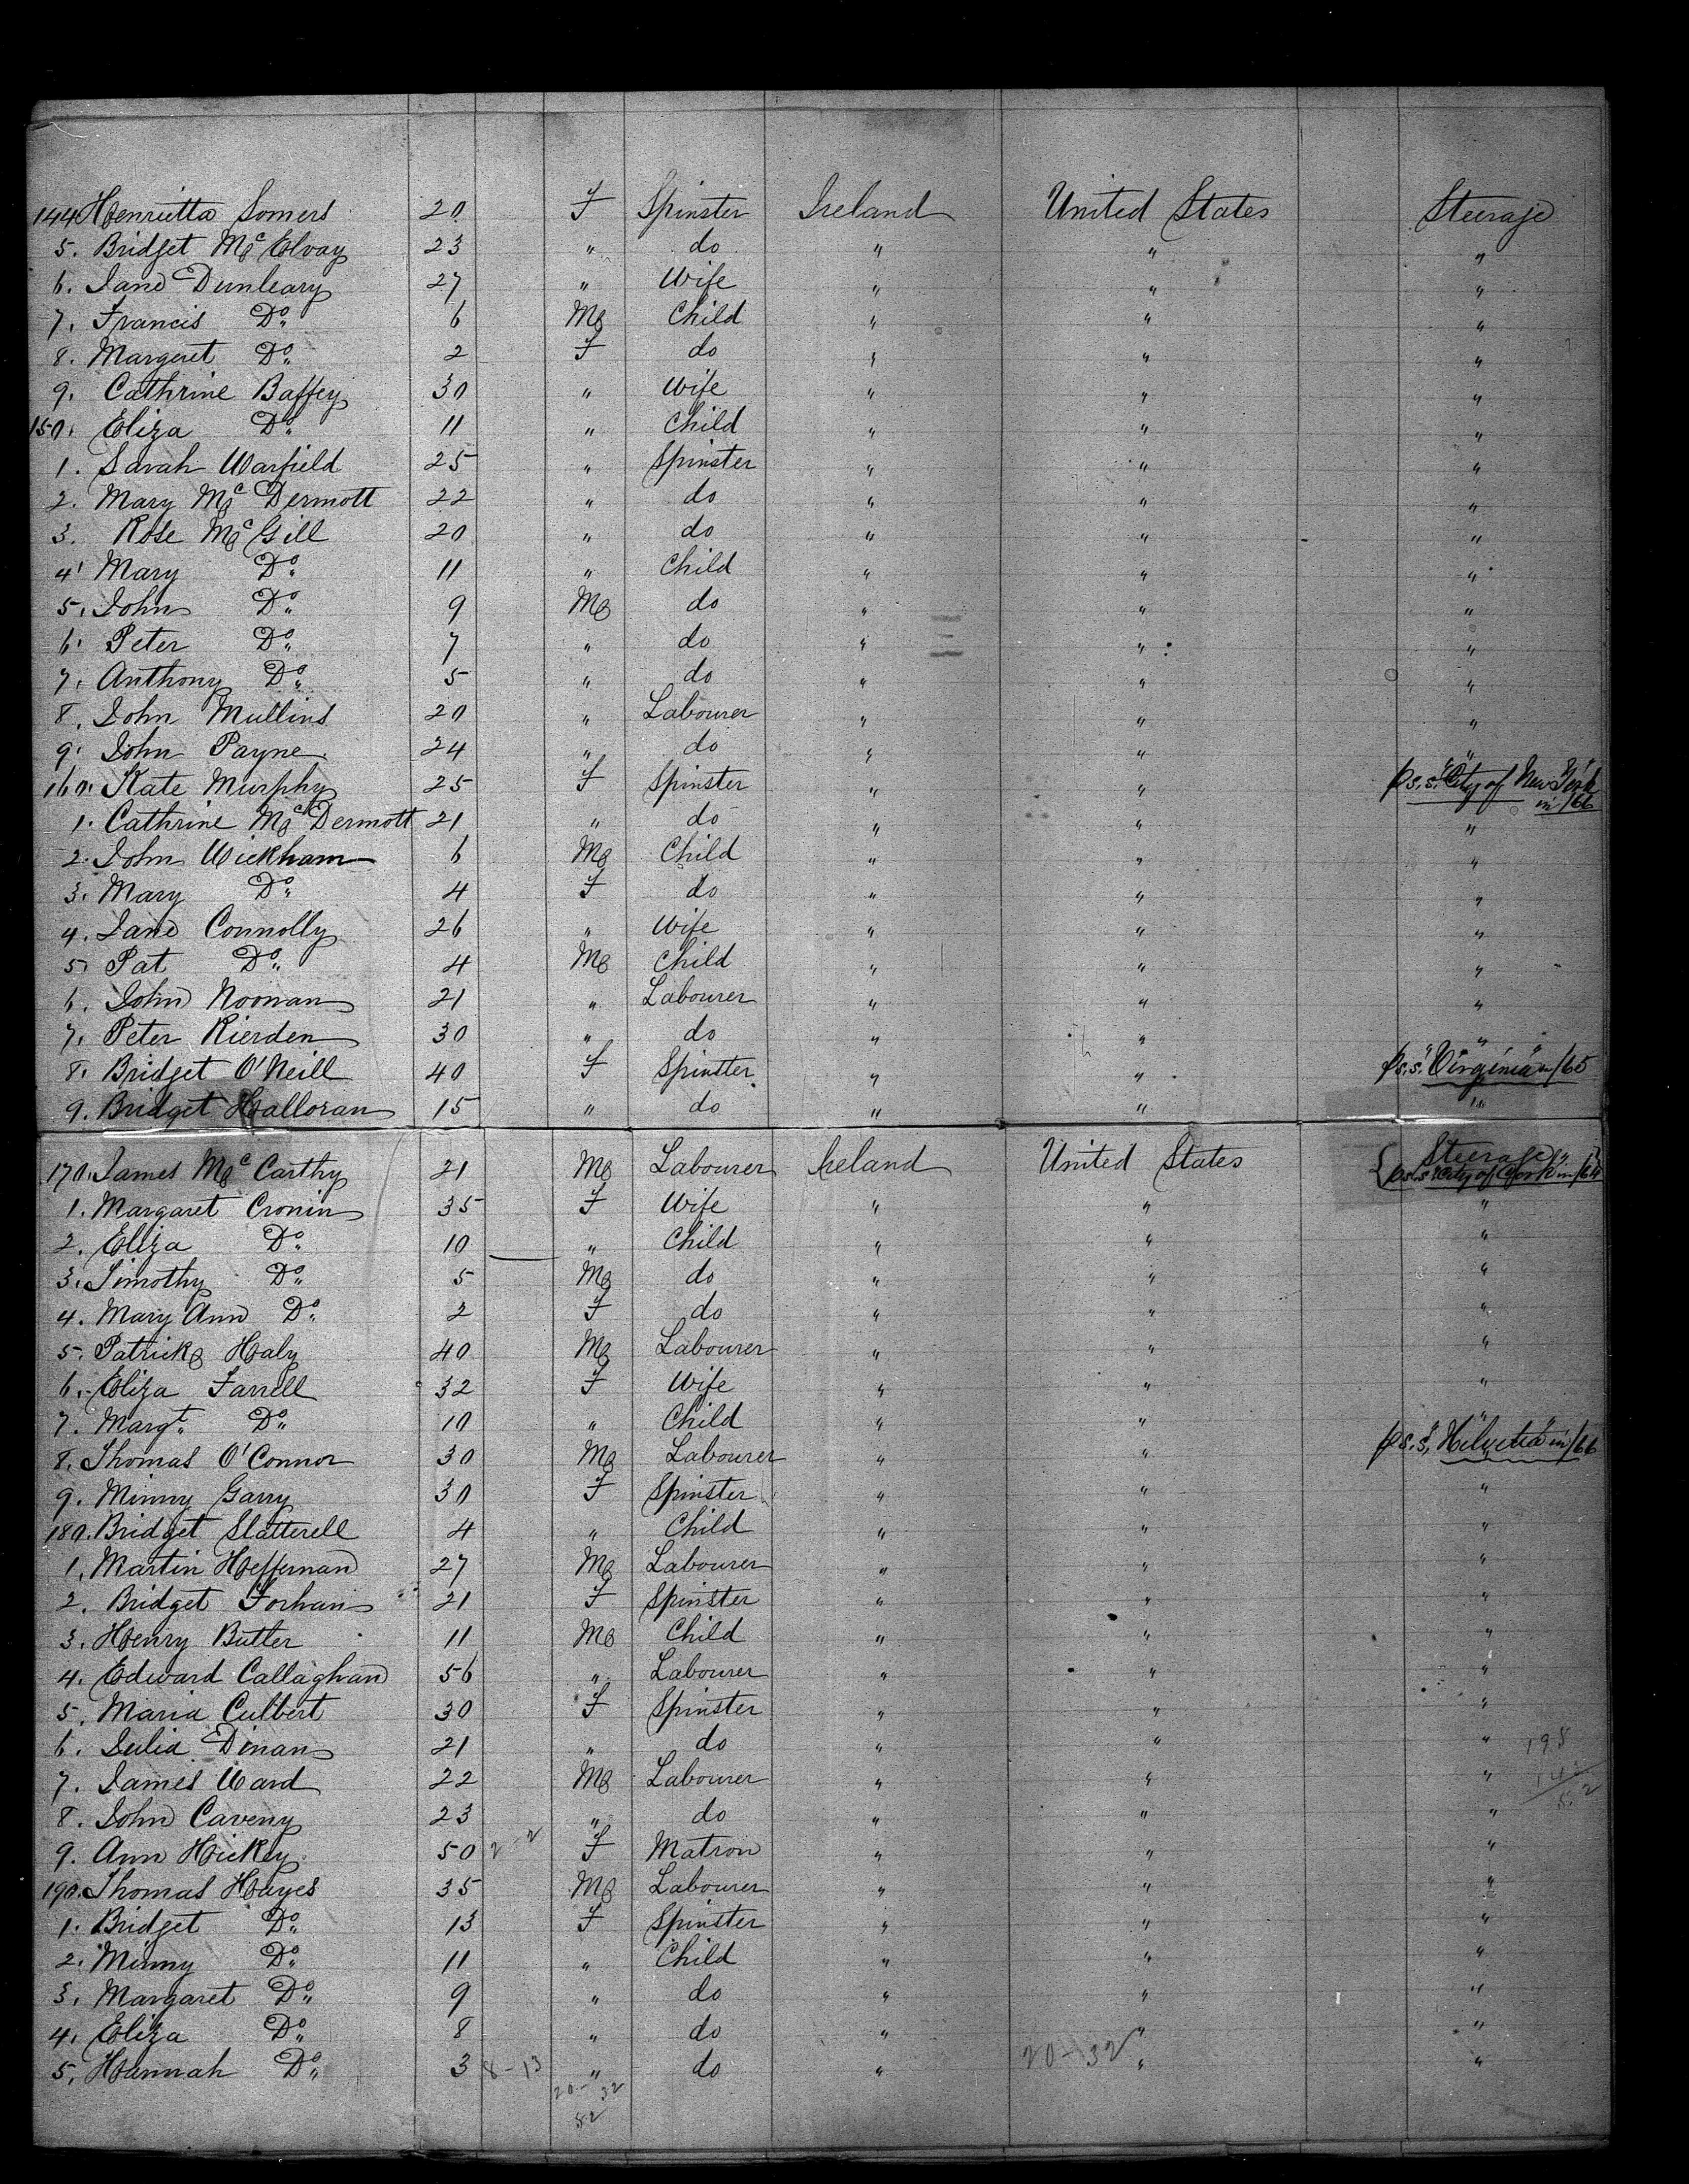 144 Henrietta Somers 20 F Spinster Ireland United States Steerage
5. Bridget McElvay 23 " do " " "
6. Jane Dunleary 27 " Wife " " "
7. Francis Do 6 M Child " " "
8. Margeret Do 2 F do " " "
9. Cathrine Baffey 30 " Wife " " "
150. Eliza Do 11 " Child " " "
1. Sarah Warfield 25 " Spinster " " "
2. Mary McDermott 22 " do " " "
3. Rose McGill 20 " do " " "
4. Mary Do 11 " Child " " "
5. John Do 9 M do " " "
6. Peter Do 7 " do " " "
7. Anthony Do 5 " do " " "
8. John Mullins 20 " Labourer " " "
9. John Payne 24 " do " " "
160. Kate Murphy 25 F Spinster " " p s.s. "City of New York" in /66
1. Cathrine McDermott 21 " do " " "
2. John Wickham 6 M Child " " "
3. Mary Do 4 F do " " "
4. Jane Connolly 26 " Wife " " "
5. Pat Do 4 M Child " " "
6. John Noonan 21 " Labourer " " "
7. Peter Rierden 30 " do " " "
8. Bridget O'Neill 40 F Spinster " " p s.s. "Virginia" in /65
9. Bridget Halloran 15 " do " " "
170. James McCarthy 21 M Labourer Ireland United States Steerage
p s.s. "City of Cork" in /64
1. Margaret Cronin 35 F Wife " " "
2. Eliza Do 10 " Child " " "
3. Timothy Do 5 M do " " "
4. Mary Ann Do 2 F do " " "
5. Patrick Haly 40 M Labourer " " "
6. Eliza Farrell 32 F Wife " " "
7. Margt. Do 10 " Child " " "
8. Thomas O'Connor 30 M Labourer " " p s.s. "Helvetia" in /66
9. Minny Garry 30 F Spinster " " "
180. Bridget Slatterell 4 " Child " " "
1. Martin Heffernan 27 M Labourer " " "
2. Bridget Forhan 21 F Spinster " " "
3. Henry Butler 11 M Child " " "
4. Edward Callaghan 56 " Labourer " " "
5. Maria Culbert 30 F Spinster " " "
6. Julia Dinan 21 " do " " "
7. James Ward 22 M Labourer " " "
8. John Caveny 23 " do " " "
9. Ann Hickey 50 F Matron " " "
190. Thomas Hayes 35 M Labourer " " "
1. Bridget Do 13 F Spinster " " "
2. Minny Do 11 " Child " " "
3. Margaret Do 9 " do " " "
4. Eliza Do 8 " do " " "
5. Hannah Do 3 8-13 " do " 20-32 " "
20-32
52